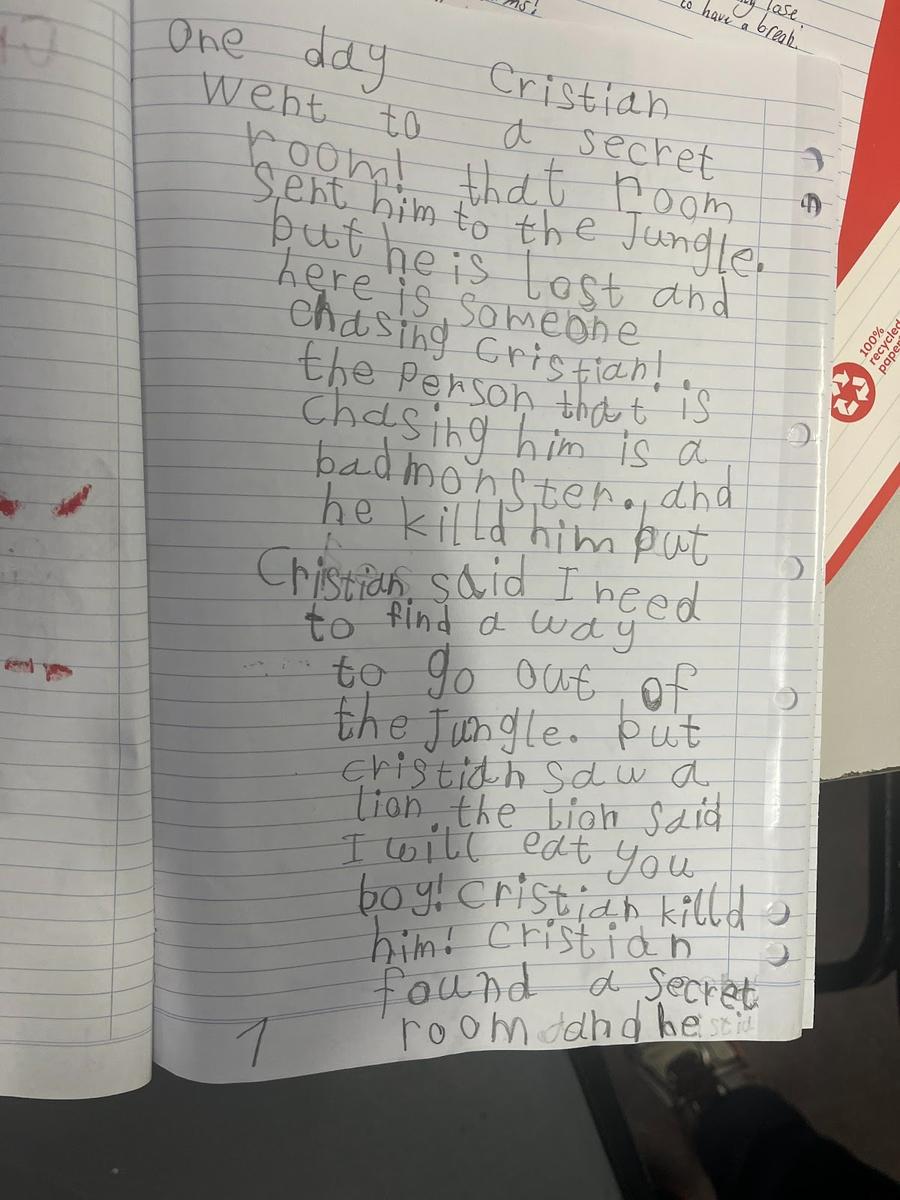 to have a break.
lose
One day Cristian
went to a secret
room! that room
sent him to the Jungle.
but he is lost and
here is someone
chasing Cristian!
the person that is
chasing him is a
bad monster. and
he killd him but
Cristian said I need
to find a way
to go out of
the Jungle. but
cristian saw a
lion. the lion said
I will eat you
boy! Cristian killd
him! Cristian
found a secret
room and he
1
100%
recycled
paper